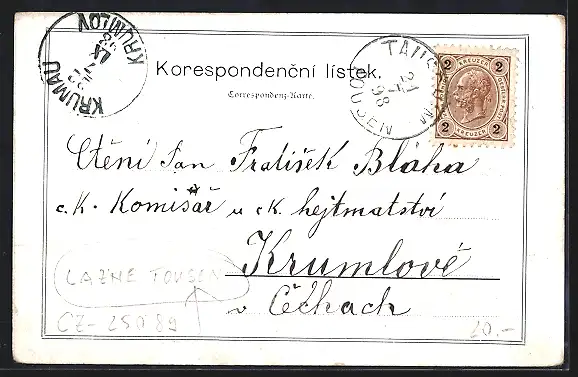 KRUMAU
KRUMLOV
Korespondenční lístek.
Correspondenz-Karte.
21 7 98
2 2
KREUZER
2 KREUZER 2
Ctění Pan Fratišek Bláha
c. k. Komisař u ck hejtmatství
Krumlově
v Čechach
LAZNE TOUSEN
CZ-25089
20.-